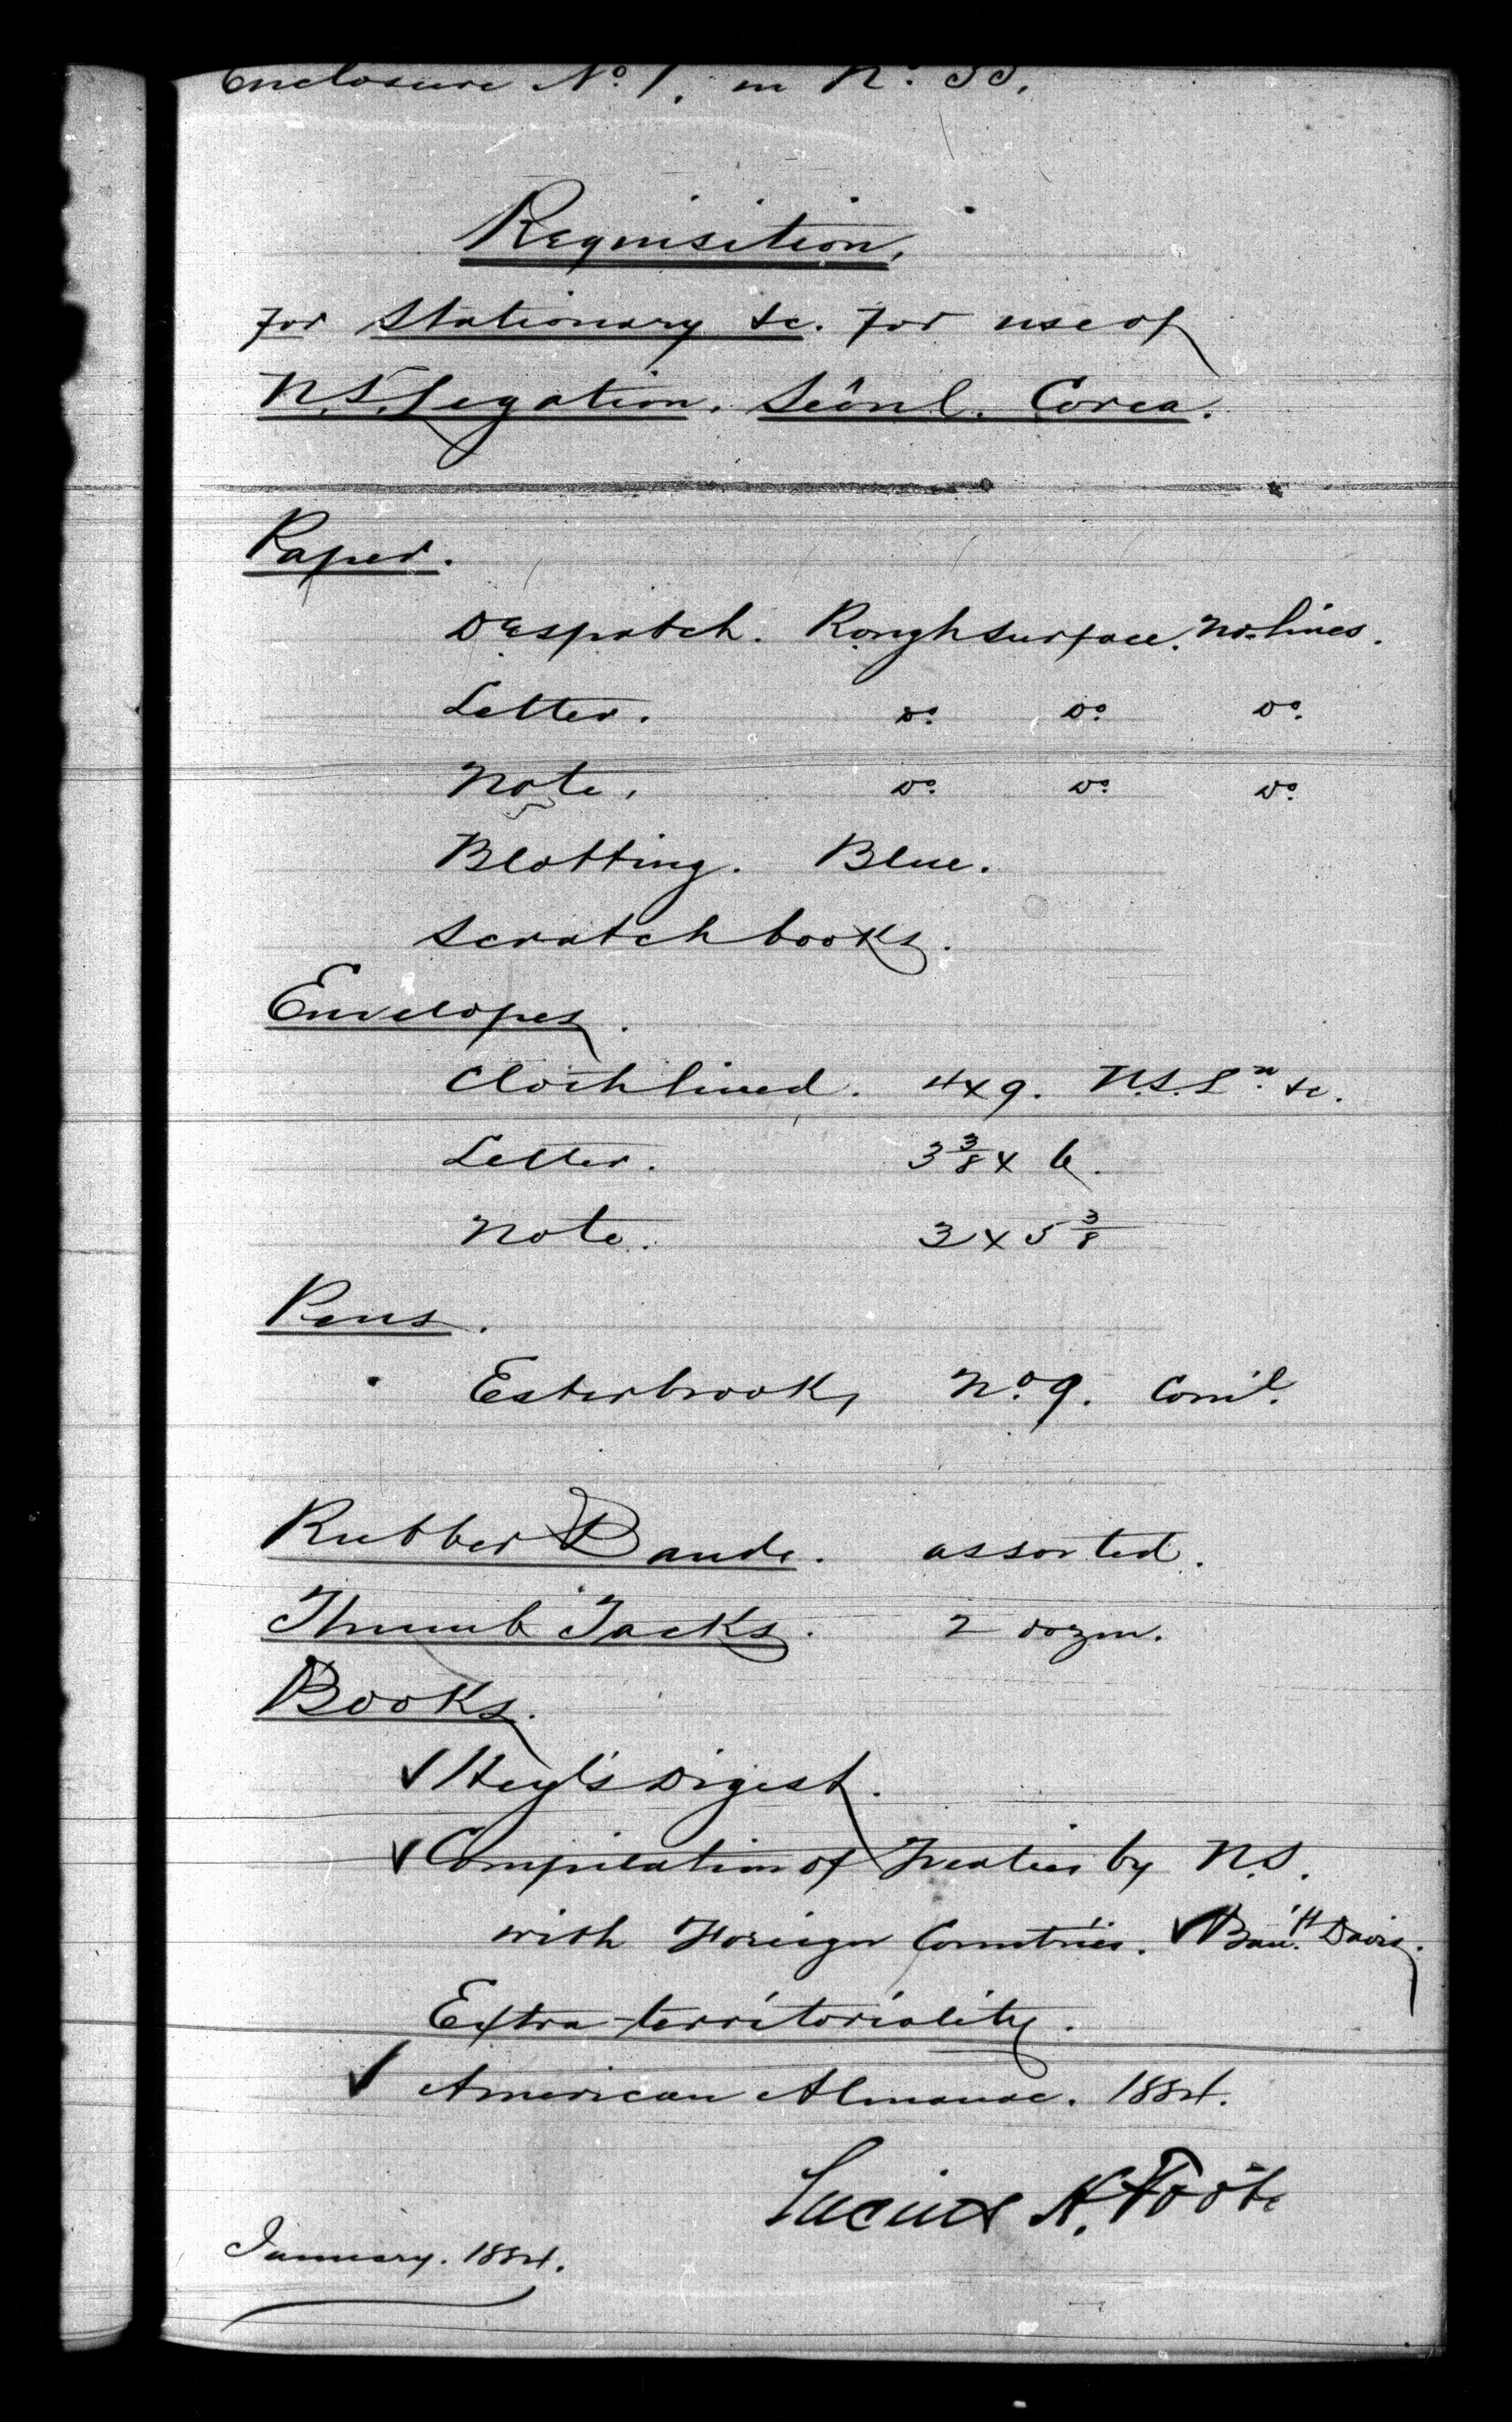 Enclosure No. 1. in No. 55.
Requisition.
for Stationary &c. for use of
U.S. Legation. Seôul. Corea.
Paper.
Despatch. Rough surface. No lines.
Letter. Do. Do. Do.
Note. Do. Do. Do.
Blotting. Blue.
Scratch books.
Envelopes.
Cloth lined. 4x9. U.S.Ln. &c.
Letter. 3 3/8 x 6.
Note. 3 x 5 3/8
Pens.
Esterbrook, No. 9. Com'l.
Rubber Bands. assorted.
Thumb Tacks. 2 dozen.
Books.
✓ Heyl's Digest.
✓ Compilation of Treaties by U.S.
with Foreign Countries. ✓ Davis.
Extra-territoriality.
✓ American Almanac. 1884.
Lucius H. Foote
January. 1884.